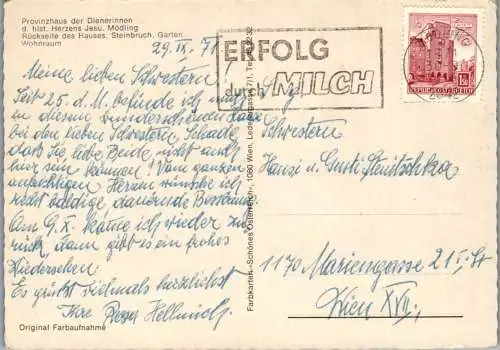 Provinzhaus der Dienerinnen
d. hlst. Herzens Jesu, Mödling
Rückseite des Hauses, Steinbruch, Garten
Wohnraum
29. IX. 71.
Meine lieben Schwestern!
Seit 25. d. M. befinde ich mich
in diesem wunderschönen Haus
bei den lieben Schwestern. Schade,
daß Sie liebe Beide nicht auch
hier sein können! Vom ganzen
aufrichtigen Herzen wünsche ich
recht baldige dauernde Besserung
Am 9. X. käme ich wieder zu-
rück, dann gibt es ein frohes
Wiedersehen.
Es grüßt vielmals herzlichst
Ihre Hellmich
Original Farbaufnahme
Farbkarten „Schönes Österreich“, 1080 Wien, Ledergasse
ERFOLG
durch MILCH
MÖDLING
REPUBLIK ÖSTERREICH
Schwestern
Hansi u. Gusti
1170 Mariengasse 21 St
Wien XVII.